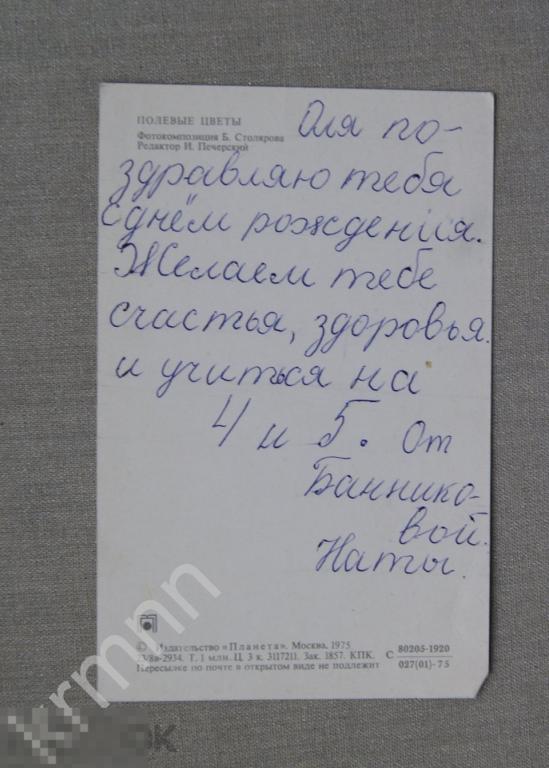 ПОЛЕВЫЕ ЦВЕТЫ
Фотокомпозиция Б. Столярова
Редактор И. Печерский
Оля по-
здравляю тебя
с днём рождения.
Желаем тебе
счастья, здоровья.
и учиться на
4 и 5. От
Баннико-
вой.
Наты.
© Издательство «Планета». Москва. 1975
Т. 1 млн. Ц. 3 к. 3117211. Зак. 1857. КПК.
Пересылке по почте в открытом виде не подлежит
С 80205-1920
027(01)-75
krmnn